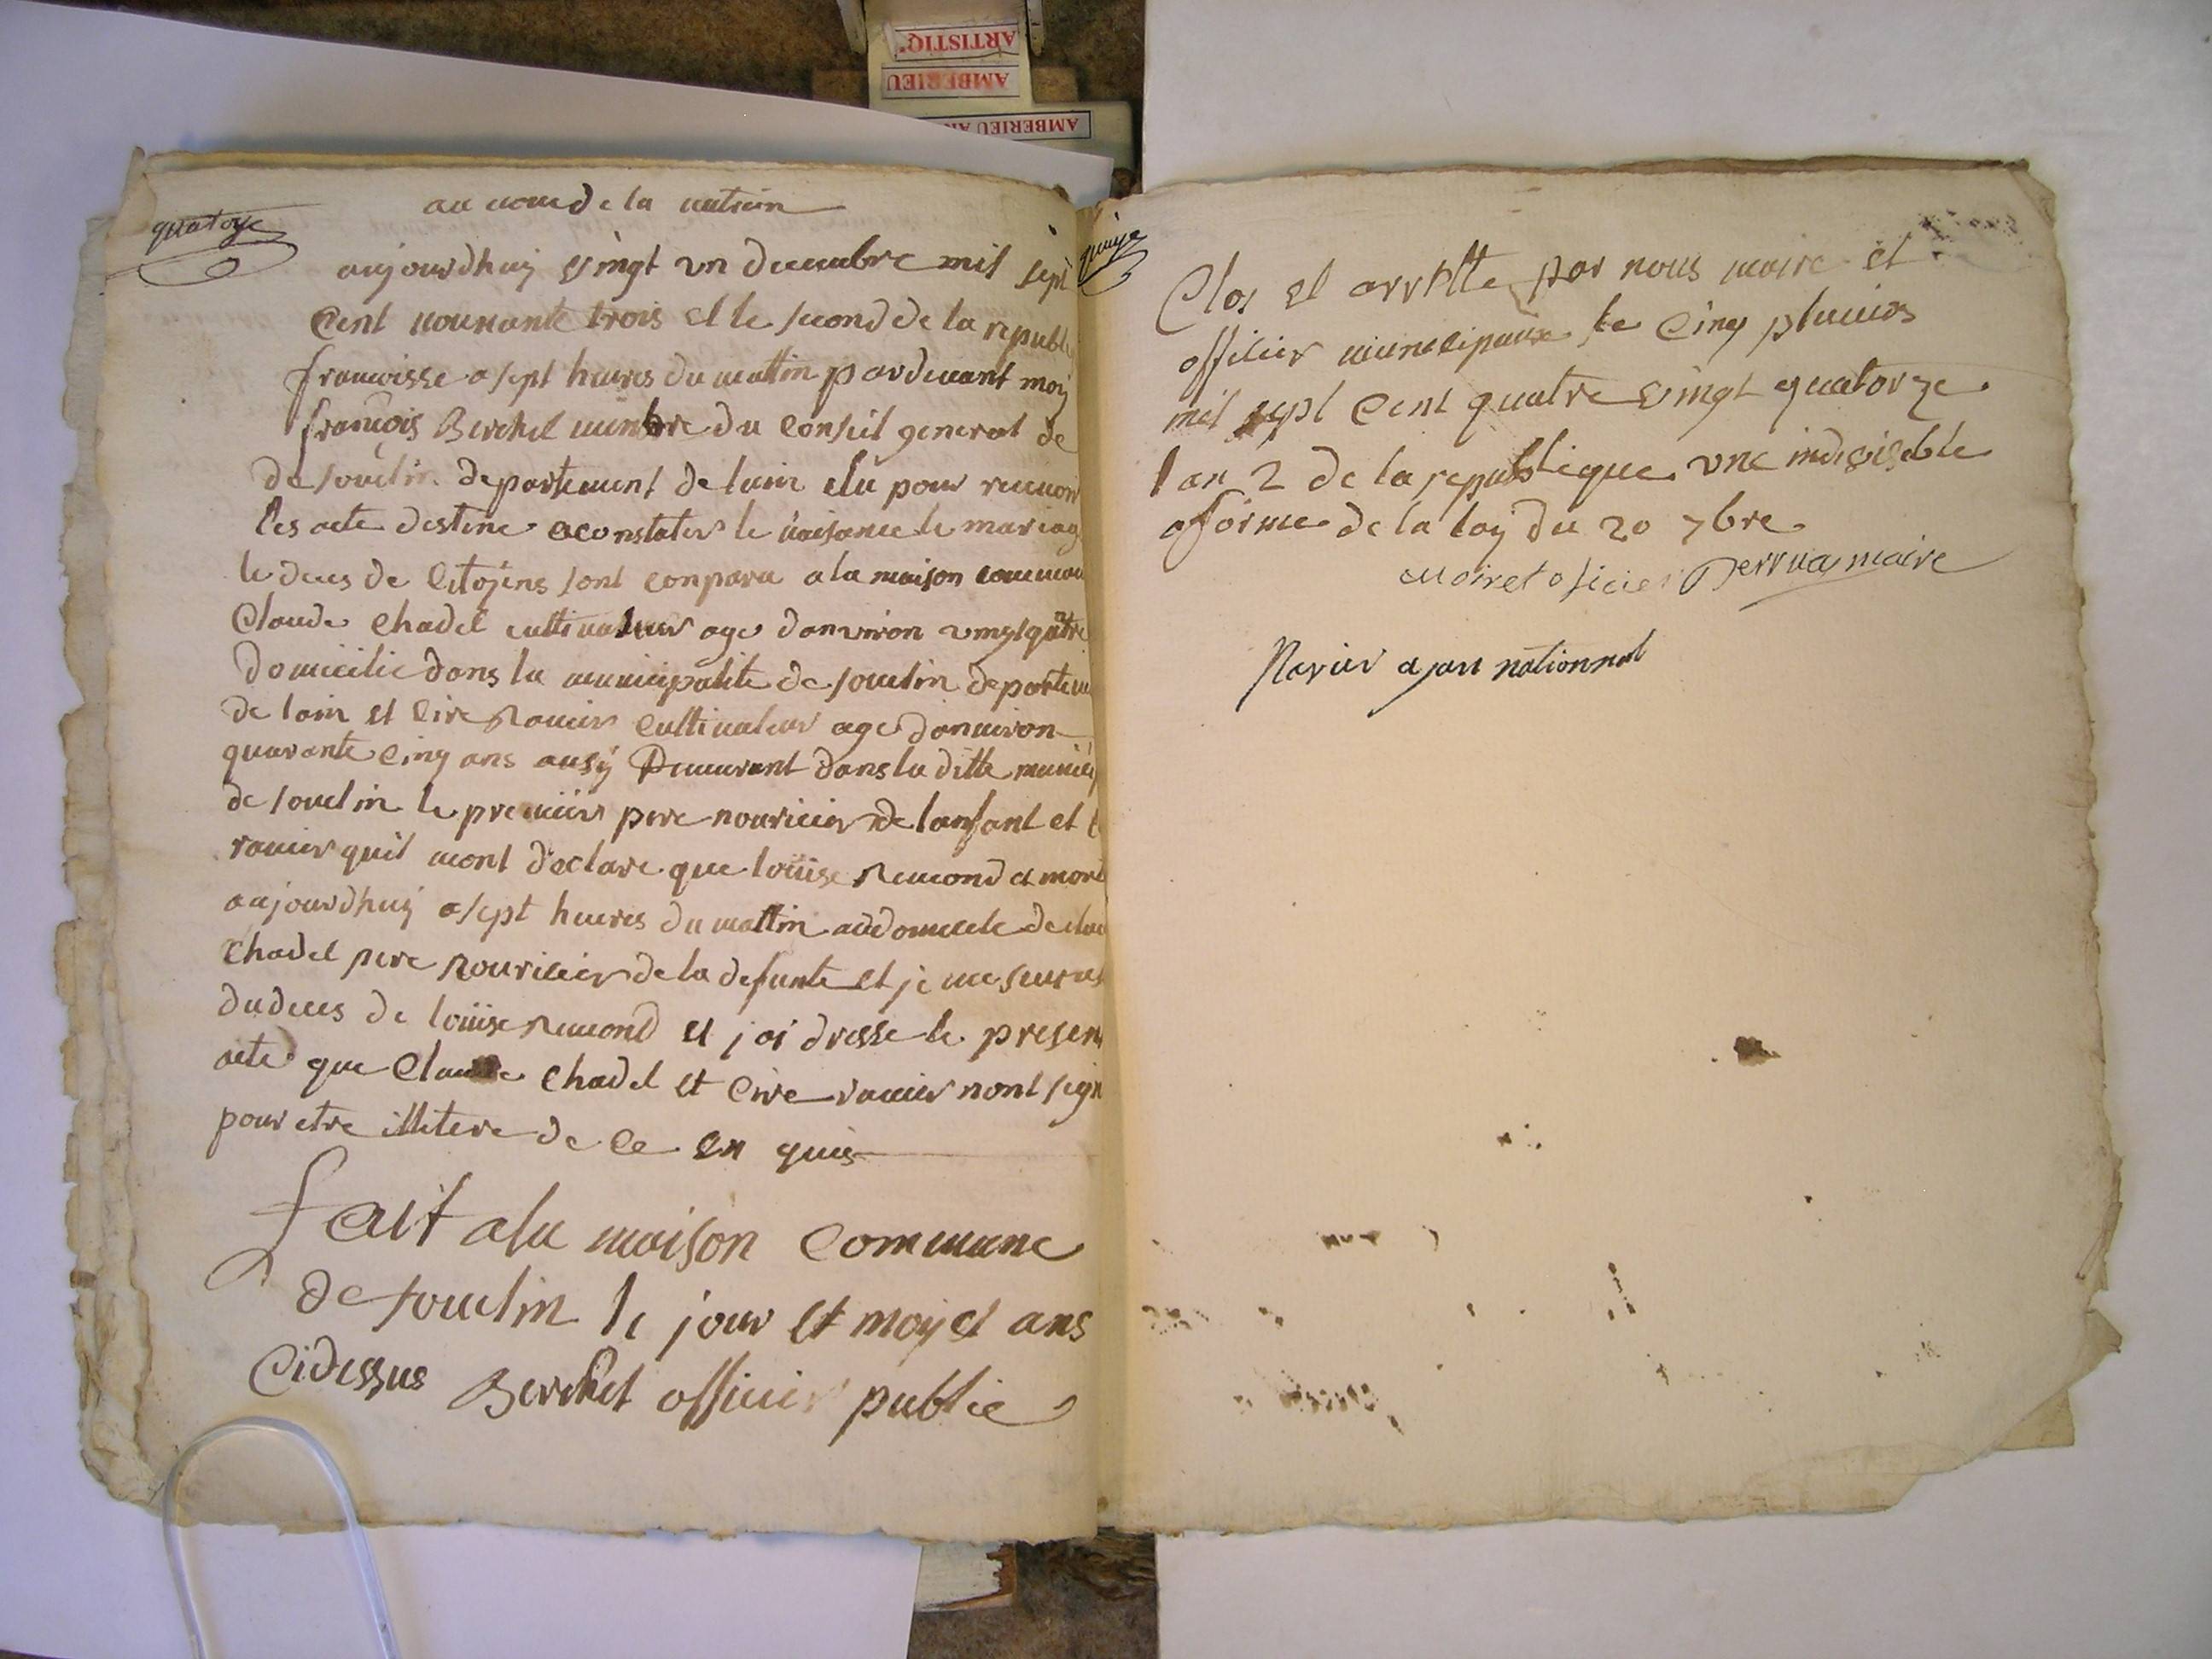 ARTISTIQ
AMBERIEU
AMBERIEU
quatorze
au nom de la nation
aujourdhuy vingt un decembre mil sept
cent nonnante trois et le second de la republi
francoisse a sept heures du mattin pardevant moy
françois Berchet menbre du conseil general de
de souclin departement de lain elü pour recevoir
les acte destine a constater le naisance le mariag
le deces de citoÿens sont conparu a la maison commun
Claude chadel cultivateur age danviron vingt quatre
domicilie dans la municipalite de souclin departem
de lain et cire ravier cultivateur age danviron
quarante cinq ans ausÿ demeurant dans la ditte municip
de souclin le premier pere nouricier de lanfant et
ravier quil mont declare que loüise remond a mort
aujourdhuÿ a sept heures du mattin au domicile de clau
chadel pere nouricier de la defunte et je me
du deces de loüise remond et jai dresse le presen
acte que Claude chadel et cire ravier nont sign
pour etre illitere de ce en quis
fait a la maison commune
de souclin le jour et moy et ans
cidessus Berchet officier public
quinze
Clos et arrette par nous maire et
officier municipaux le cinq pluvios
mil sept cent quatre vingt quatorze
lan 2 de la republique une indivisible
a forme de la loy du 20 7bre
moiret oficier maire
Ravier ajan nationnal